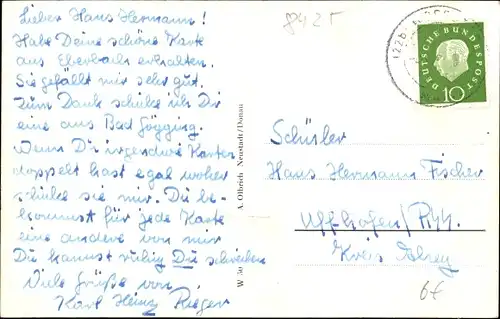 Lieber Hans Hermann!
Habe Deine schöne Karte
aus Eberbach erhalten.
Sie gefällt mir sehr gut.
Zum Dank schicke ich Dir
eine aus Bad Gögging.
Wenn Du irgendwie Karten
doppelt hast egal woher
schicke sie mir. Du be-
kommst für jede Karte
eine andere von mir
Du kannst ruhig Du schreiben
Viele Grüße von
Karl Heinz Rieger
W 30 A. Ollrich Neustadt/Donau
(22b)
DEUTSCHE BUNDESPOST
10
Schüler
Hans Hermann Fischer
Uffhofen/Rhh.
Kreis Alzey
6€